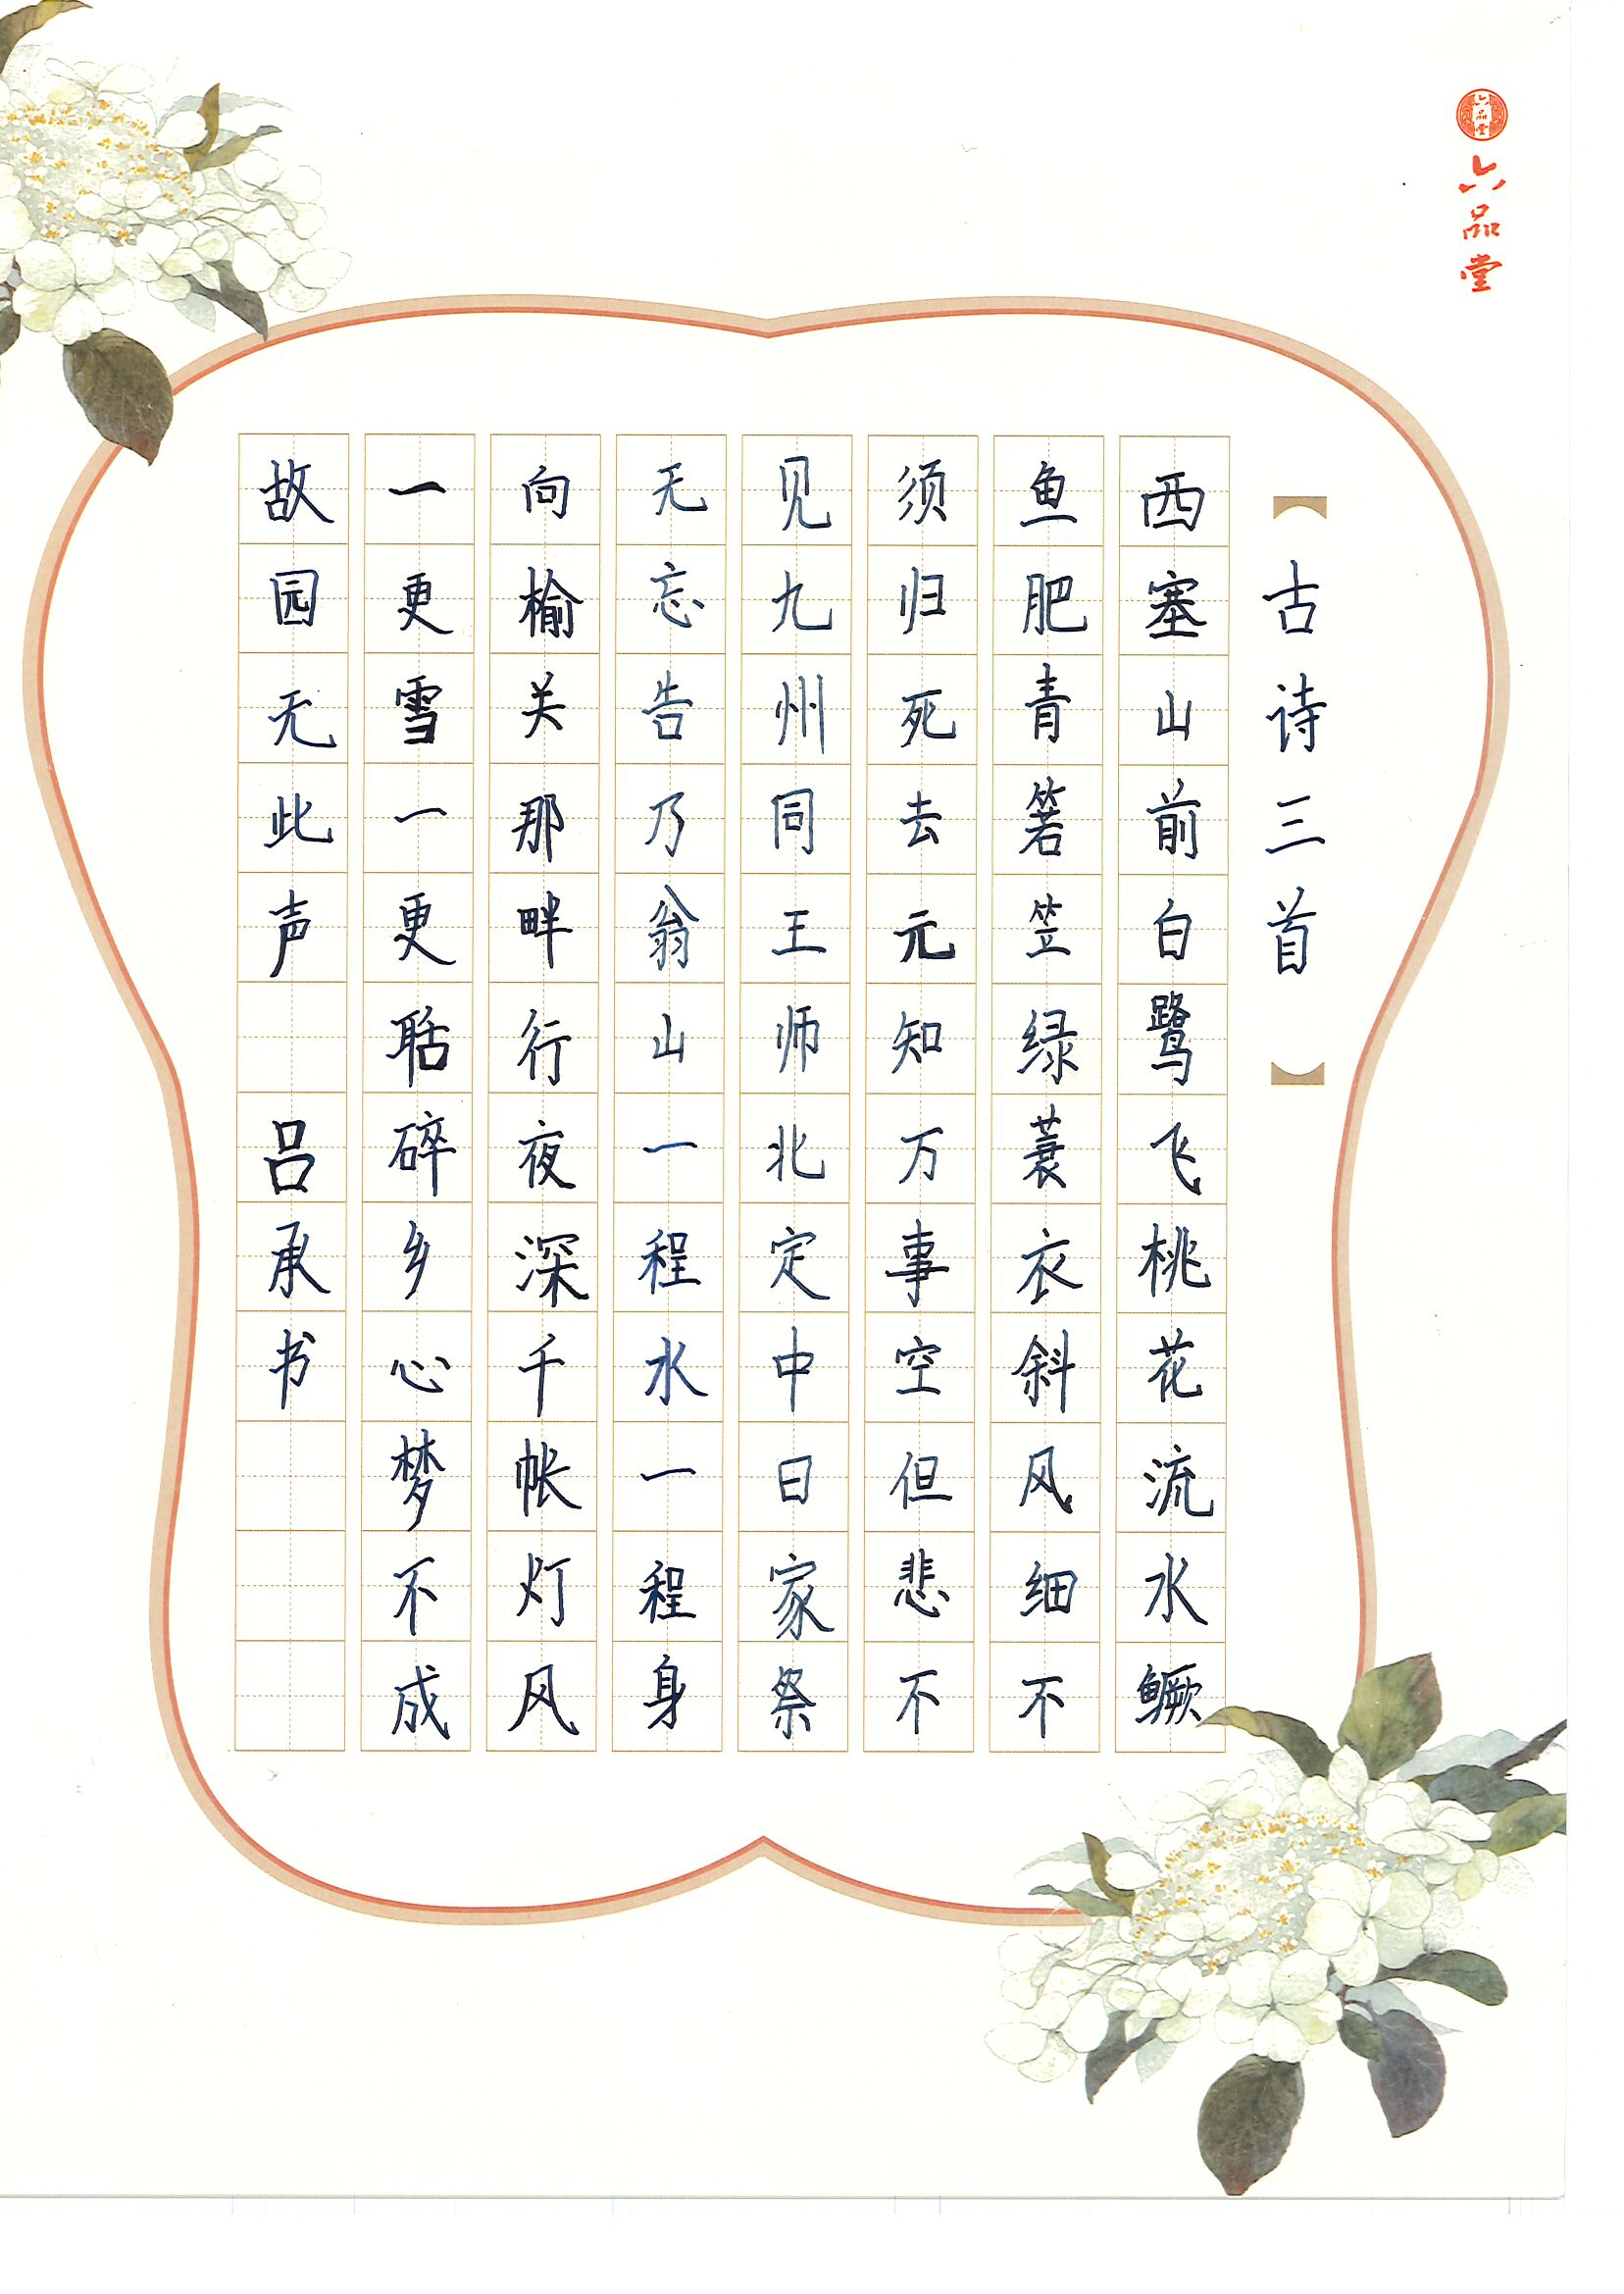 六品堂
六品堂
【古诗三首】
西塞山前白鹭飞桃花流水鳜
鱼肥青箬笠绿蓑衣斜风细不
须归死去元知万事空但悲不
见九州同王师北定中日家祭
无忘告乃翁山一程水一程身
向榆关那畔行夜深千帐灯风
一更雪一更聒碎乡心梦不成
故园无此声 吕承书